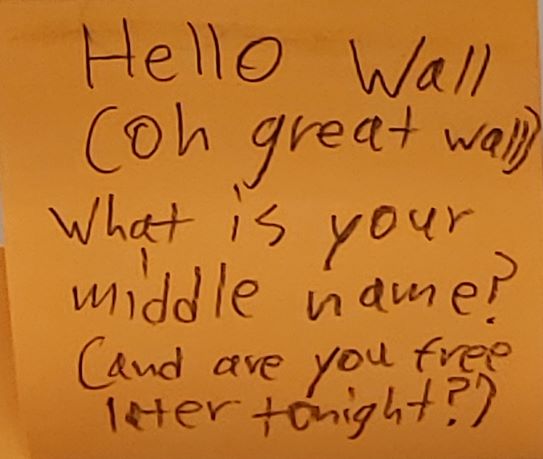 Hello Wall
(oh great wall)
What is your
middle name?
(and are you free
later tonight?)